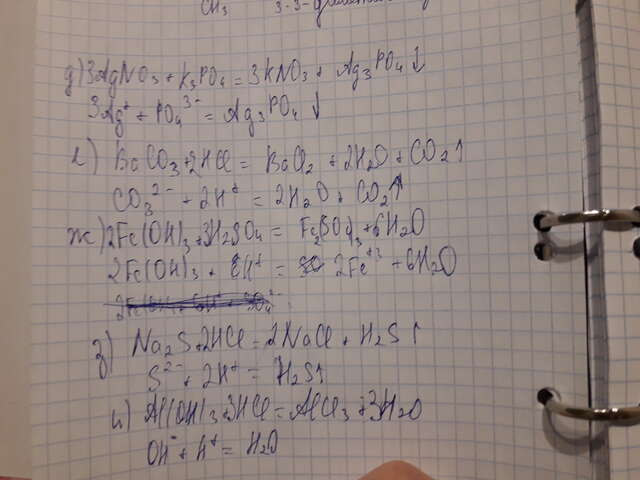 CH₃ 3-3-
д) 3AgNO₃ + K₃PO₄ = 3KNO₃ + Ag₃PO₄↓
3Ag⁺ + PO₄³⁻ = Ag₃PO₄↓
е) BaCO₃ + 2HCl = BaCl₂ + 2H₂O + CO₂↑
CO₃²⁻ + 2H⁺ = 2H₂O + CO₂↑
ж) 2Fe(OH)₃ + 3H₂SO₄ = Fe₂(SO₄)₃ + 6H₂O
2Fe(OH)₃ + 6H⁺ = 2Fe⁺³ + 6H₂O
з) Na₂S + 2HCl = 2NaCl + H₂S↑
S²⁻ + 2H⁺ = H₂S↑
и) Al(OH)₃ + 3HCl = AlCl₃ + 3H₂O
OH⁻ + H⁺ = H₂O